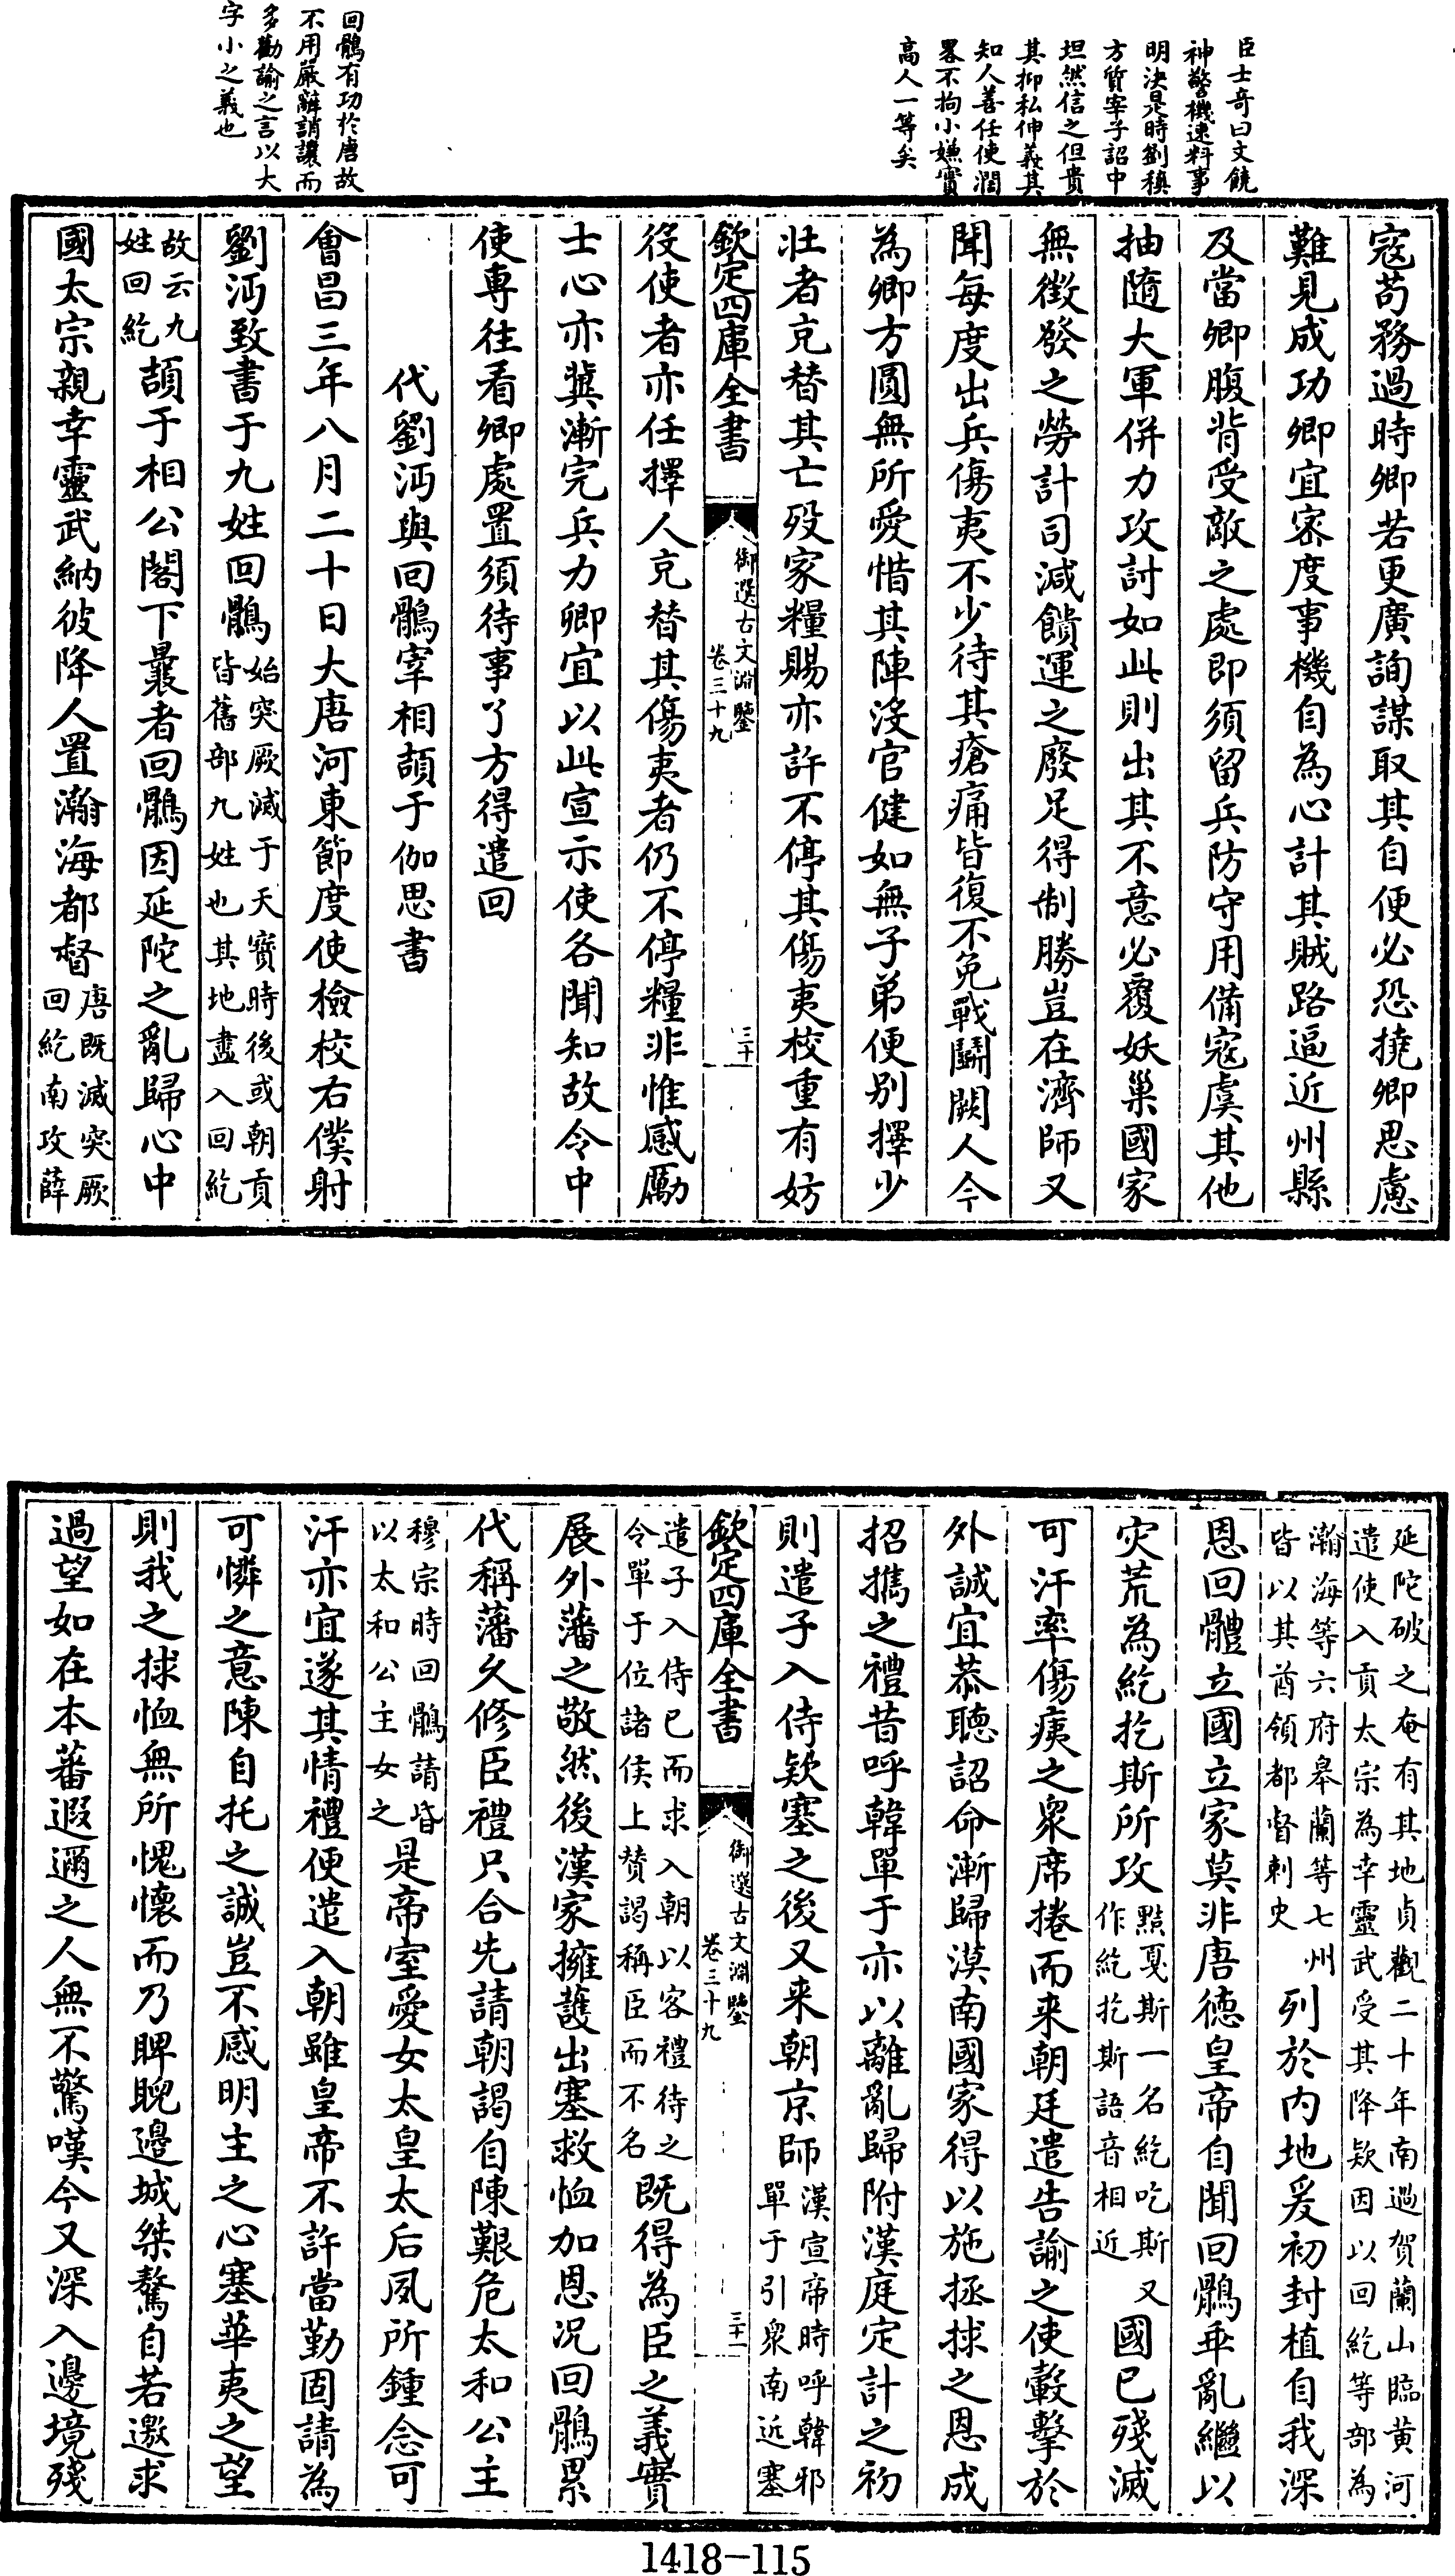 臣士奇曰文饒
神警機速料事
明決是時劉稹
方質宰子詔中
坦然信之但責
其抑私伸義其
知人善任使濶
畧不拘小嫌實
高人一等矣
回鶻有功於唐故
不用嚴辭誚讓而
多勸諭之言以大
字小之義也
寇苟務過時卿若更廣詢謀取其自便必恐撓卿思慮
難見成功卿宜密度事機自為心計其賊路逼近州縣
及當卿腹背受敵之處即須留兵防守用備寇虞其他
抽隨大軍併力攻討如此則出其不意必覆妖巢國家
無徵發之勞計司減饋運之廢足得制勝豈在濟師又
聞每度出兵傷夷不少待其瘡痛皆復不免戰鬭闕人今
為卿方圓無所愛惜其陣沒官健如無子弟便別擇少
壯者充替其亡歿家糧賜亦許不停其傷夷校重有妨
欽定四庫全書
御選古文淵鑒
卷三十九
三十
役使者亦任擇人充替其傷夷者仍不停糧非惟感勵
士心亦冀漸完兵力卿宜以此宣示使各聞知故令中
使專往看卿處置須待事了方得遣回
代劉沔與回鶻宰相頡于伽思書
會昌三年八月二十日大唐河東節度使檢校右僕射
劉沔致書于九姓回鶻始突厥滅于天寶時後或朝貢
皆舊部九姓也其地盡入回紇
故云九
姓回紇頡于相公閣下曩者回鶻因延陀之亂歸心中
國太宗親幸靈武納彼降人置瀚海都督唐既滅突厥
回紇南攻薛
延陀破之奄有其地貞觀二十年南過賀蘭山臨黃河
遣使入貢太宗為幸靈武受其降欵因以回紇等部為
瀚海等六府皋蘭等七州
皆以其酋領都督刺史列於內地爰初封植自我深
恩回體立國立家莫非唐德皇帝自聞回鶻乖亂繼以
灾荒為紇扢斯所攻點戛斯一名紇吃斯又
作紇扢斯語音相近國已殘滅
可汗率傷痍之衆席捲而来朝廷遣告諭之使轂擊於
外誠宜恭聽詔命漸歸漠南國家得以施拯捄之恩成
招攜之禮昔呼韓單于亦以離亂歸附漢庭定計之初
則遣子入侍欵塞之後又来朝京師漢宣帝時呼韓邪
單于引衆南近塞
欽定四庫全書
御選古文淵鑒
卷三十九
三十一
遣子入侍已而求入朝以客禮待之
令單于位諸侯上賛謁稱臣而不名既得為臣之義實
展外藩之敬然後漢家擁護出塞救恤加恩况回鶻累
代稱藩久修臣禮只合先請朝謁自陳艱危太和公主
穆宗時回鶻請昏
以太和公主女之是帝室愛女太皇太后夙所鍾念可
汗亦宜遂其情禮便遣入朝雖皇帝不許當勤固請為
可憐之意陳自托之誠豈不感明主之心塞華夷之望
則我之捄恤無所愧懷而乃睥睨邉城桀驁自若邀求
過望如在本蕃遐邇之人無不驚嘆今又深入邊境殘
1418-115